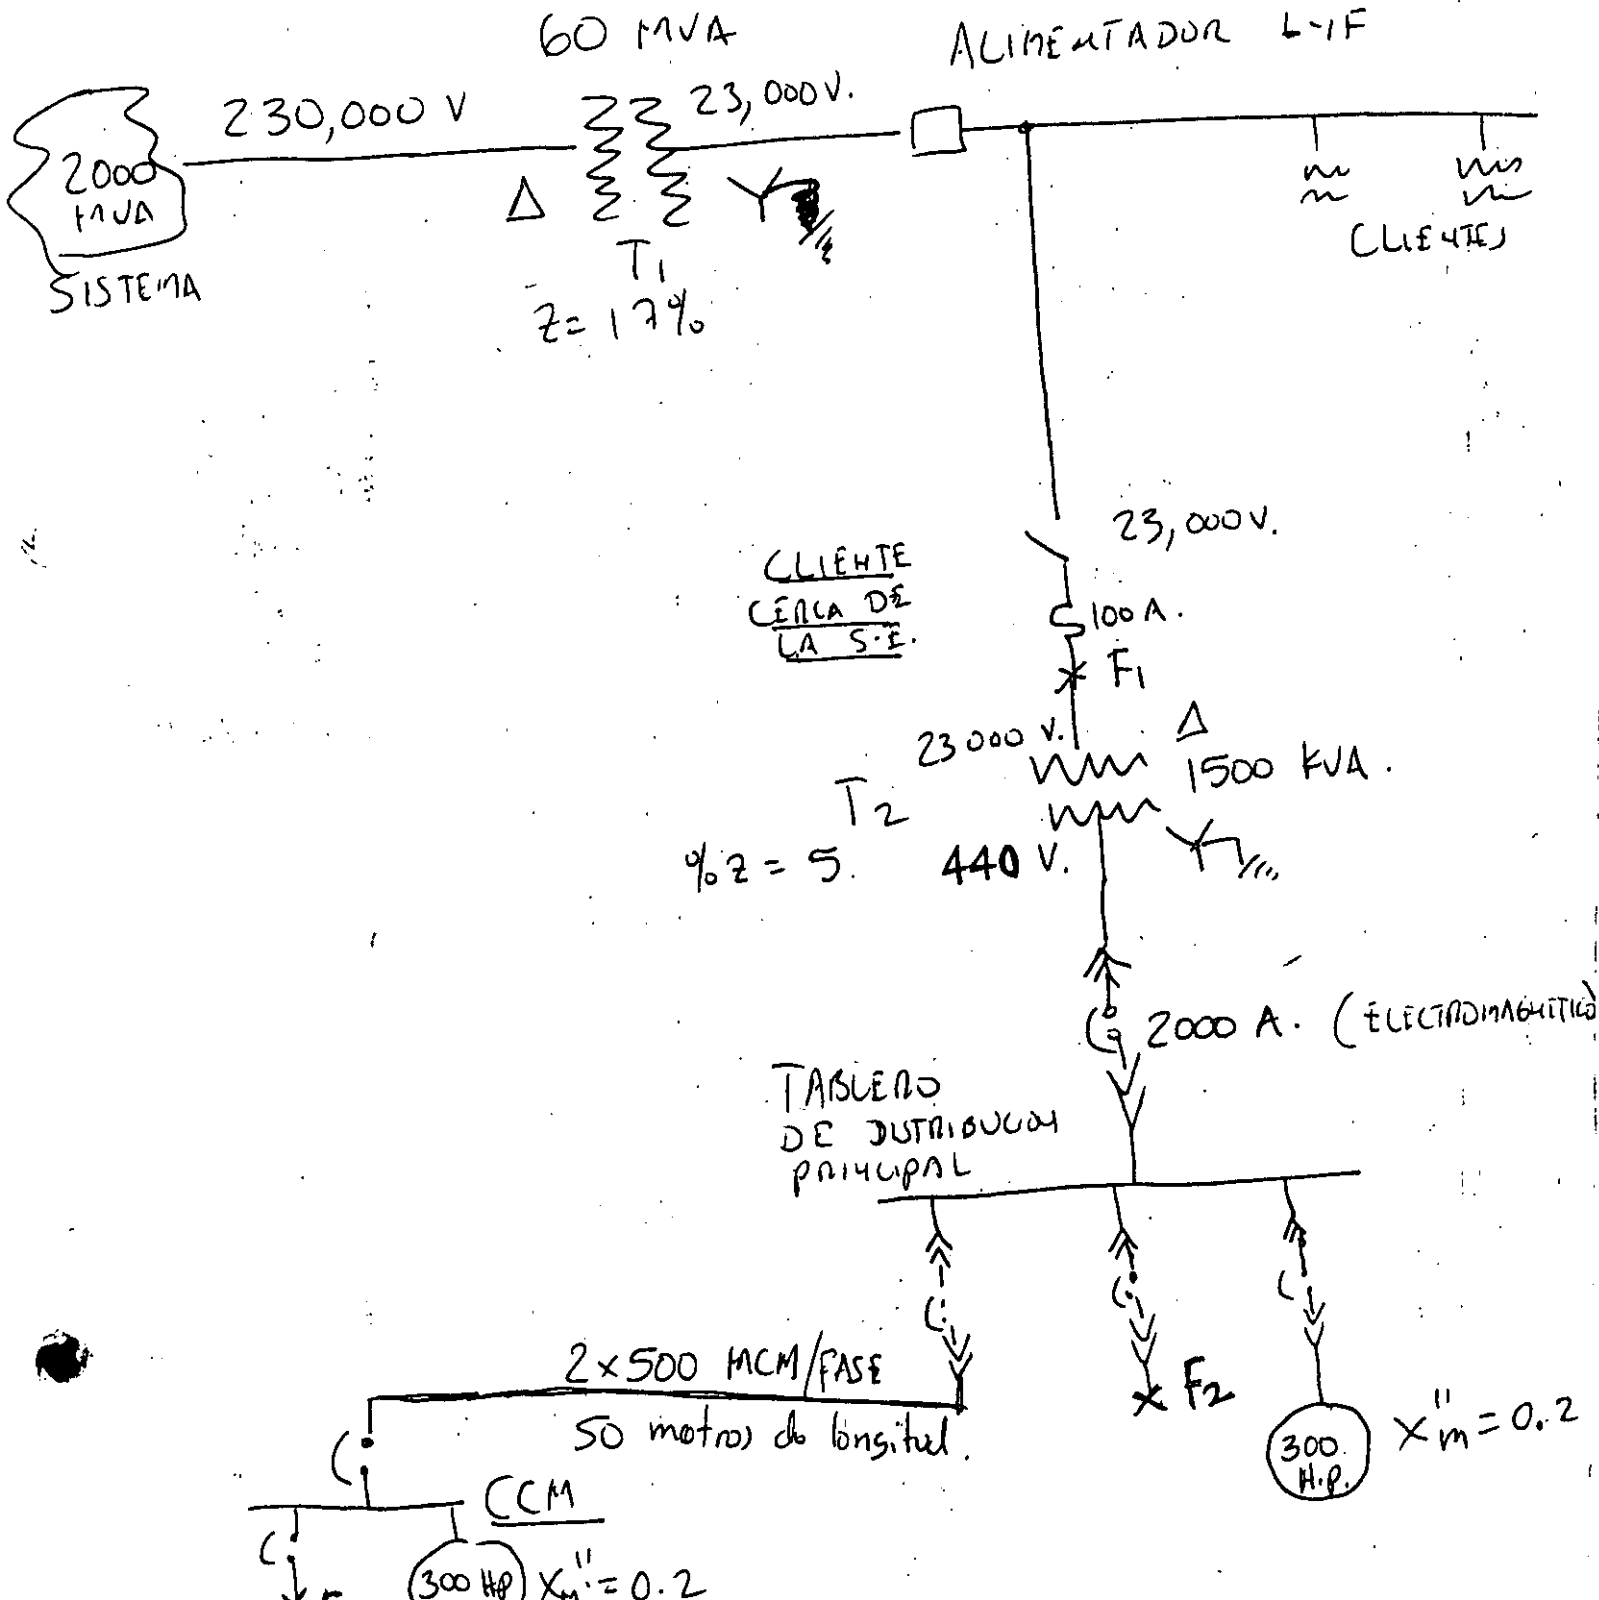 60 MVA
ALIMENTADOR L-1F
230,000 V
23,000 V.
2000
MVA
SISTEMA
Δ
T1
Z= 17%
CLIENTES
23,000 V.
CLIENTE
CERCA DE
LA S.E.
100 A.
F1
23000 V.
Δ
1500 KVA.
T2
%Z = 5.
440 V.
2000 A. (ELECTROMAGNETICO)
TABLERO
DE DISTRIBUCION
PRINCIPAL
2x500 MCM/FASE
50 metros de longitud.
F2
300
H.P.
X"m = 0.2
CCM
300 HP
X"m = 0.2